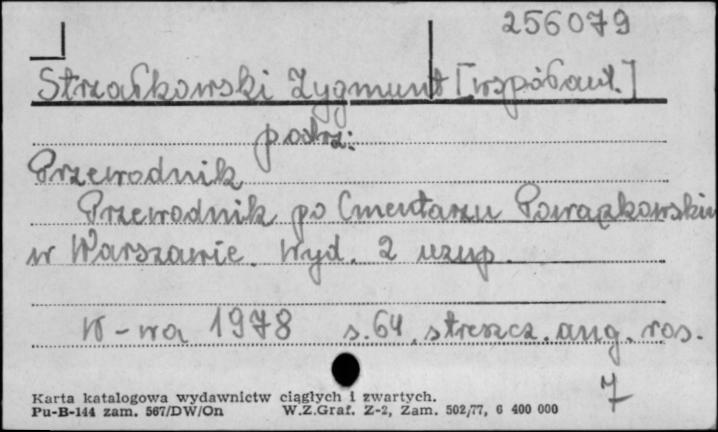 256079
Strzałkowski Zygmunt [współaut.]
patrz:
Przewodnik
Przewodnik po Cmentarzu Powązkowskim
w Warszawie. Wyd. 2 uzup.
W-wa 1978 s. 64, streszcz. ang. ros.
7
Karta katalogowa wydawnictw ciągłych i zwartych.
Pu-B-144 zam. 567/DW/On W.Z.Graf. Z-2, Zam. 502/77, 6 400 000